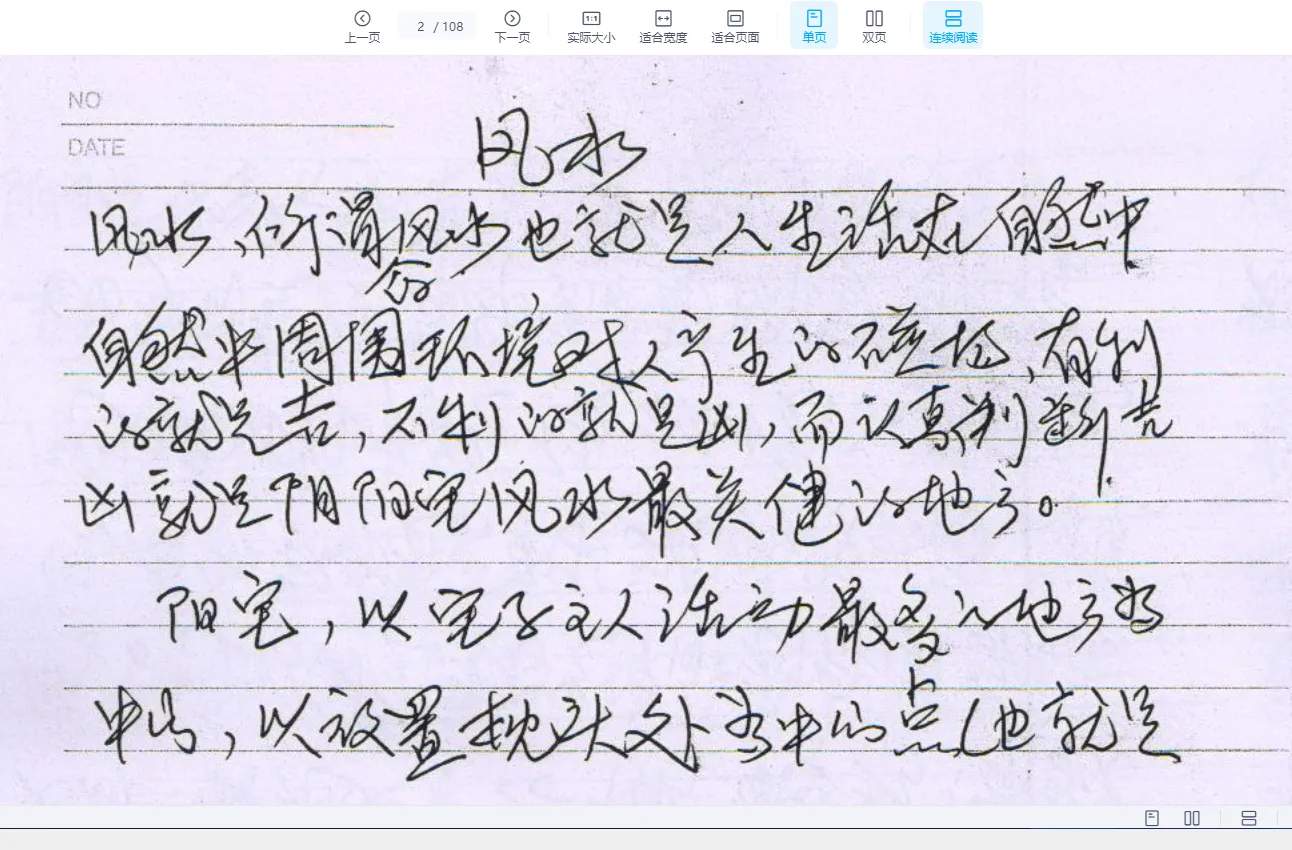 上一页 2 / 108 下一页 实际大小 适合宽度 适合页面 单页 双页 连续阅读
NO
DATE
风水
风水、所谓风水也就是人生活在自然中
分
自然中周围环境对人产生的磁场,有利
的就是吉,不利的就是凶,而认真判断吉
凶就是阴阳宅风水最关健的地方。
阳宅,以宅子主人活动最多的地方为
中心,以放置枕头处为中心点(也就是